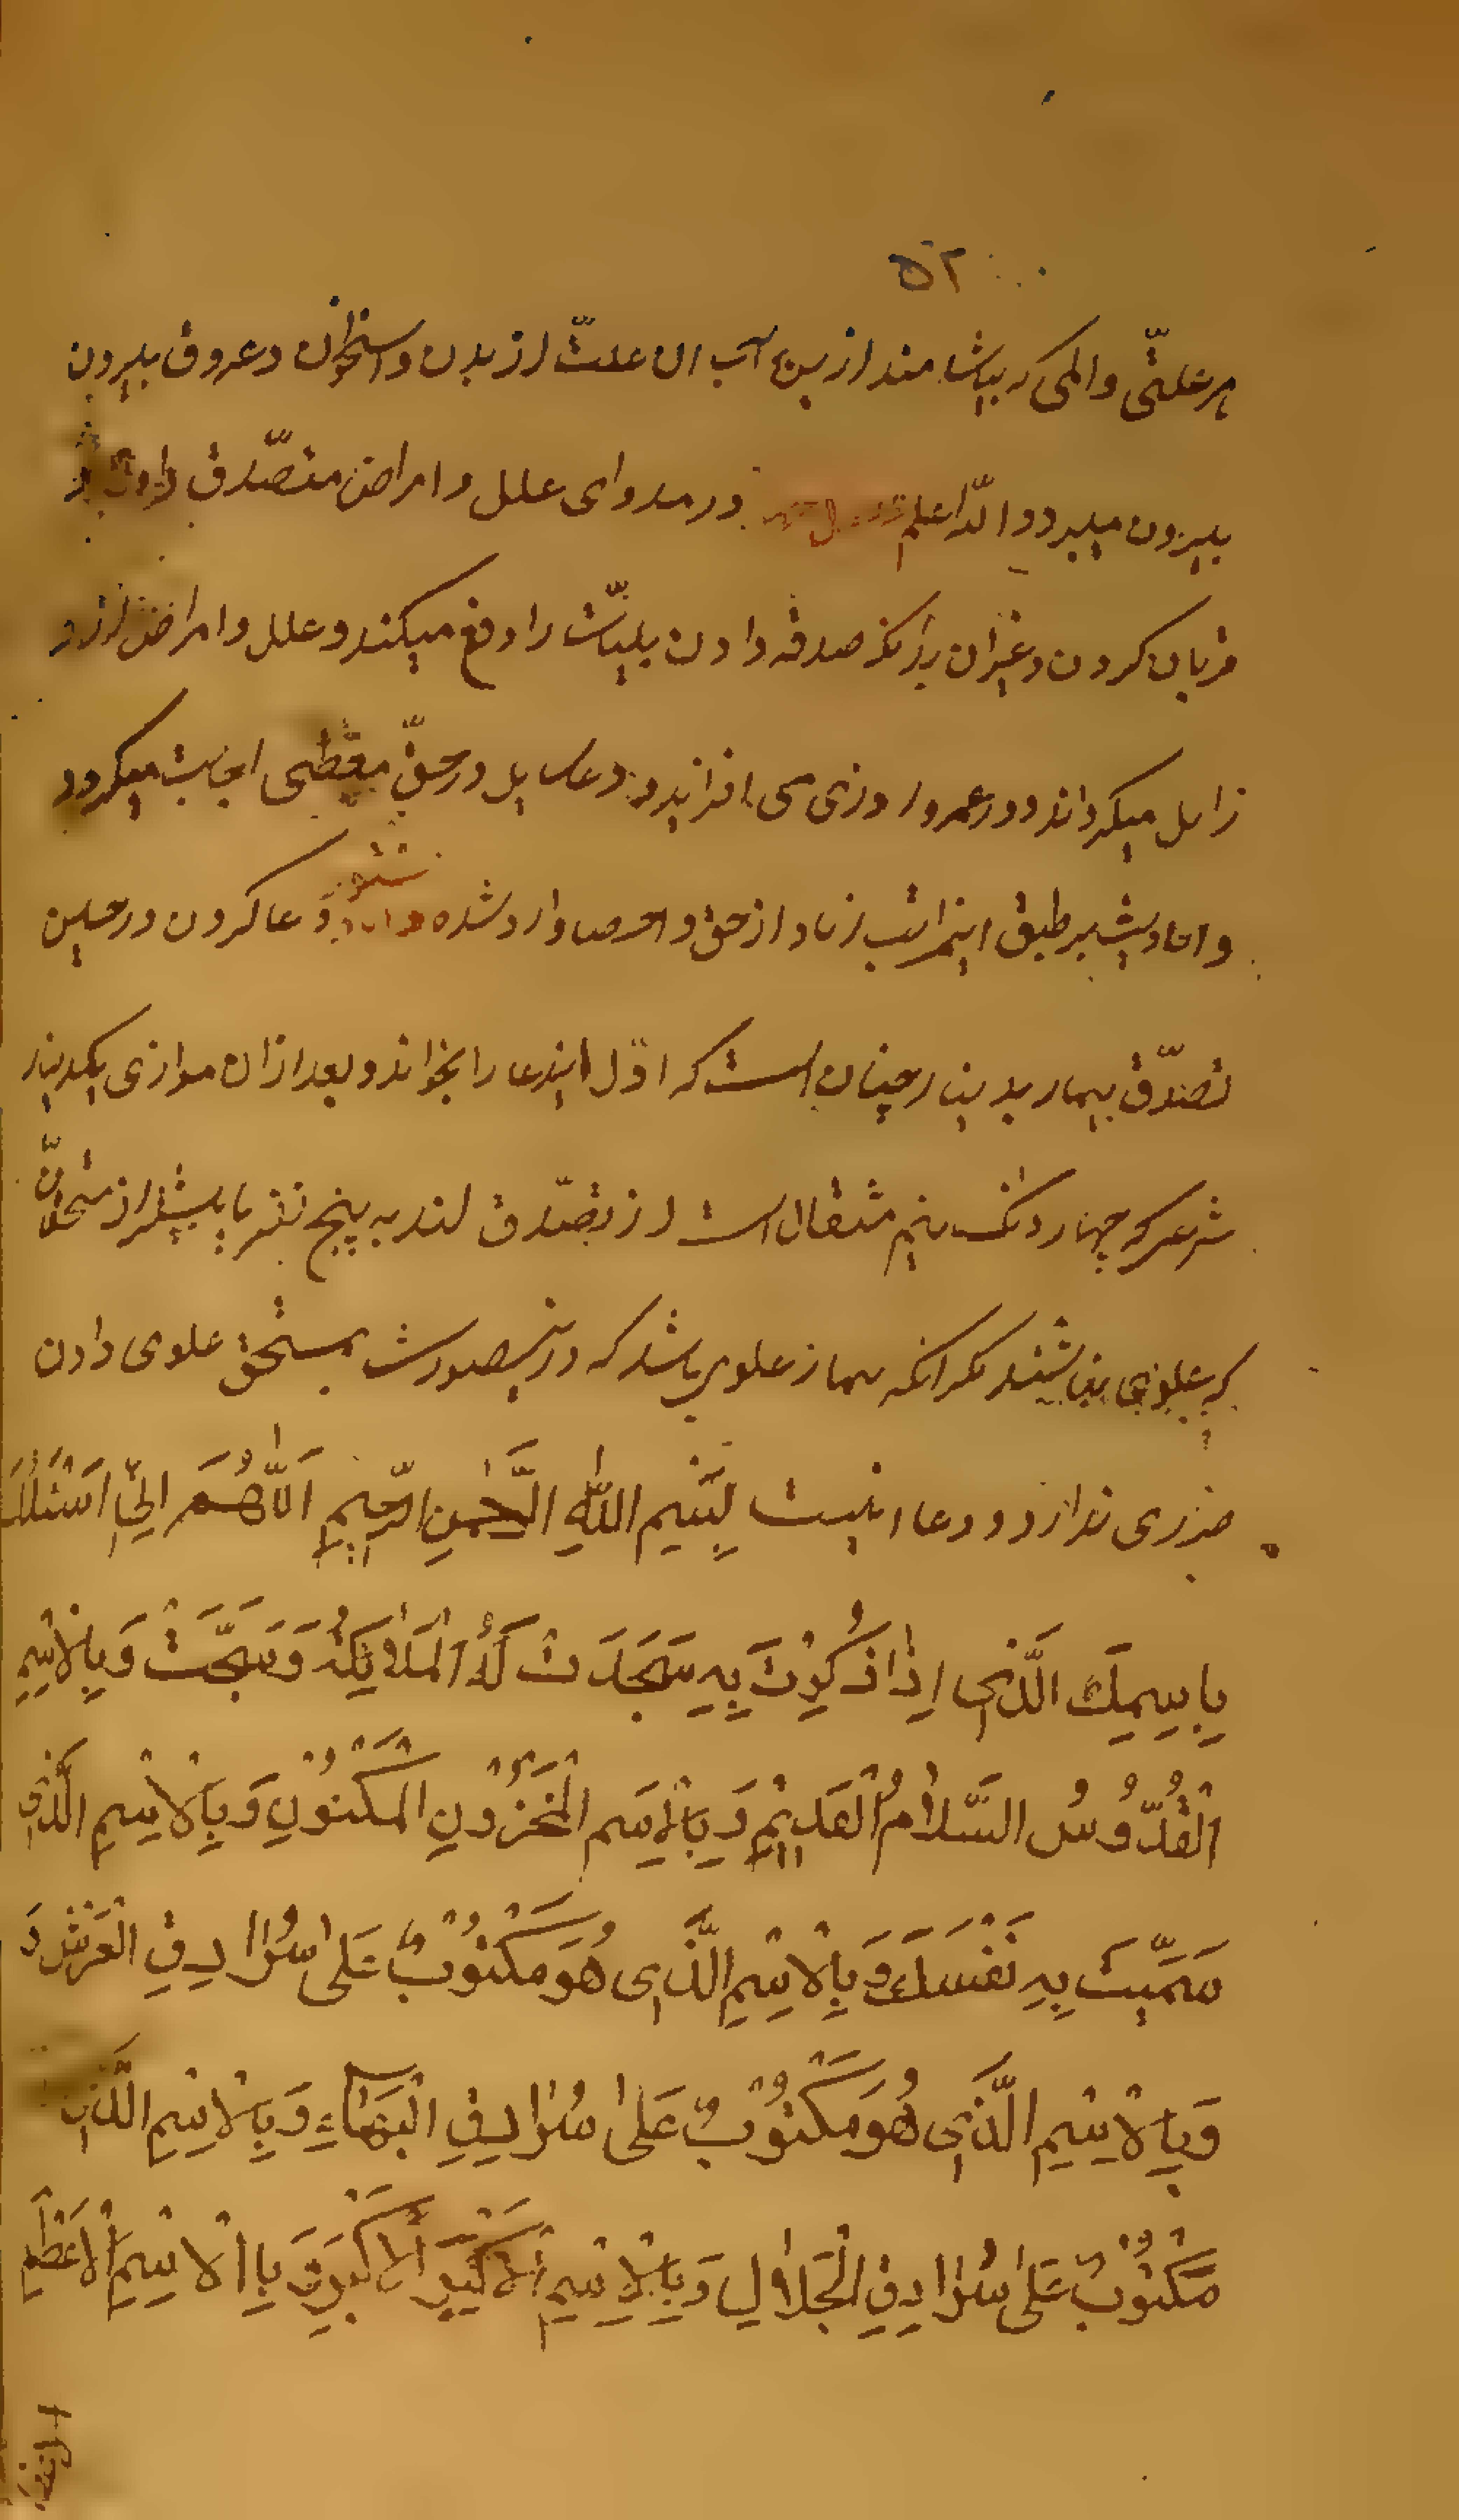 ۵۲
هر علتّی والمی که بیاشامند ازین آب ان علتّ از بدن و استخوان و عروق بیرون
بیرون میبرد و الله اعلم در مدوای علل و امراض متصدّق دادن
قربان کردن و غیران بدانکه صدقه دادن بلیّات را دفع میکند و علل و امراض از او
زایل میکرداند و در عمر و روزی می افزاید و دعاء سایل در حقّ معطی اجابت میکردد
و احادیث بر طبق اینمراتب زیاد از حق و احصا وارد شده دعا کردن در حین
تصدّق بیمار بدینار چنان است که اوّل ایندعا را بخواند و بعد ازان موازی یکدینار
شرعی که چهار دانک نیم مثقال است از تصدّق کند به پنج نفر یا بیشتر از مستحقان
که علوی نباشند مکر انکه بیمار علوی باشد که در اینصورت بمستحق علوی دادن
ضرری ندارد و دعا اینست بِسْمِ اللّٰهِ الرَّحْمٰنِ الرَّحِیمِ اَللّٰهُمَّ اِنّی اَسْئَلُکَ
بِاسِمِكَ الَّذی اِذٰا ذُکِرْتَ بِهِ سَجَدَتْ لَكَ الْمَلاٰئِکَةُ وَسَبَّحَتْ وَبِالْاِسْمِ
الْقُدُّوُسُ السَّلاٰمُ الْقَدیْمِ وَبِالْاِسَمِ الْمَخْزُوُنِ الْمَکْنُوْنِ وَبِالْاِسْمِ الَّذی
سَمَّیْتَ بِهِ نَفْسَكَ وَبِالْاِسْمِ الَّذی هُوَ مَکْتُوُبٌ عَلیٰ سُرٰادِقِ الْعَرْشِ وَ
وَبِالْاِسْمِ الَّذی هُوَ مَکْتُوُبٌ عَلیٰ سُرٰادِقِ الْبَهٰاءِ وَبِالْاِسْمِ الَّذی
مَکْتُوُبٌ عَلیٰ سُرٰادِقِ الْجَلاٰلِ وَبِالْاِسْمِ الْاَکْبَرِ الْاَکْبَرِ وَبِاالْاِسْمِ الْاَعْظَمِ